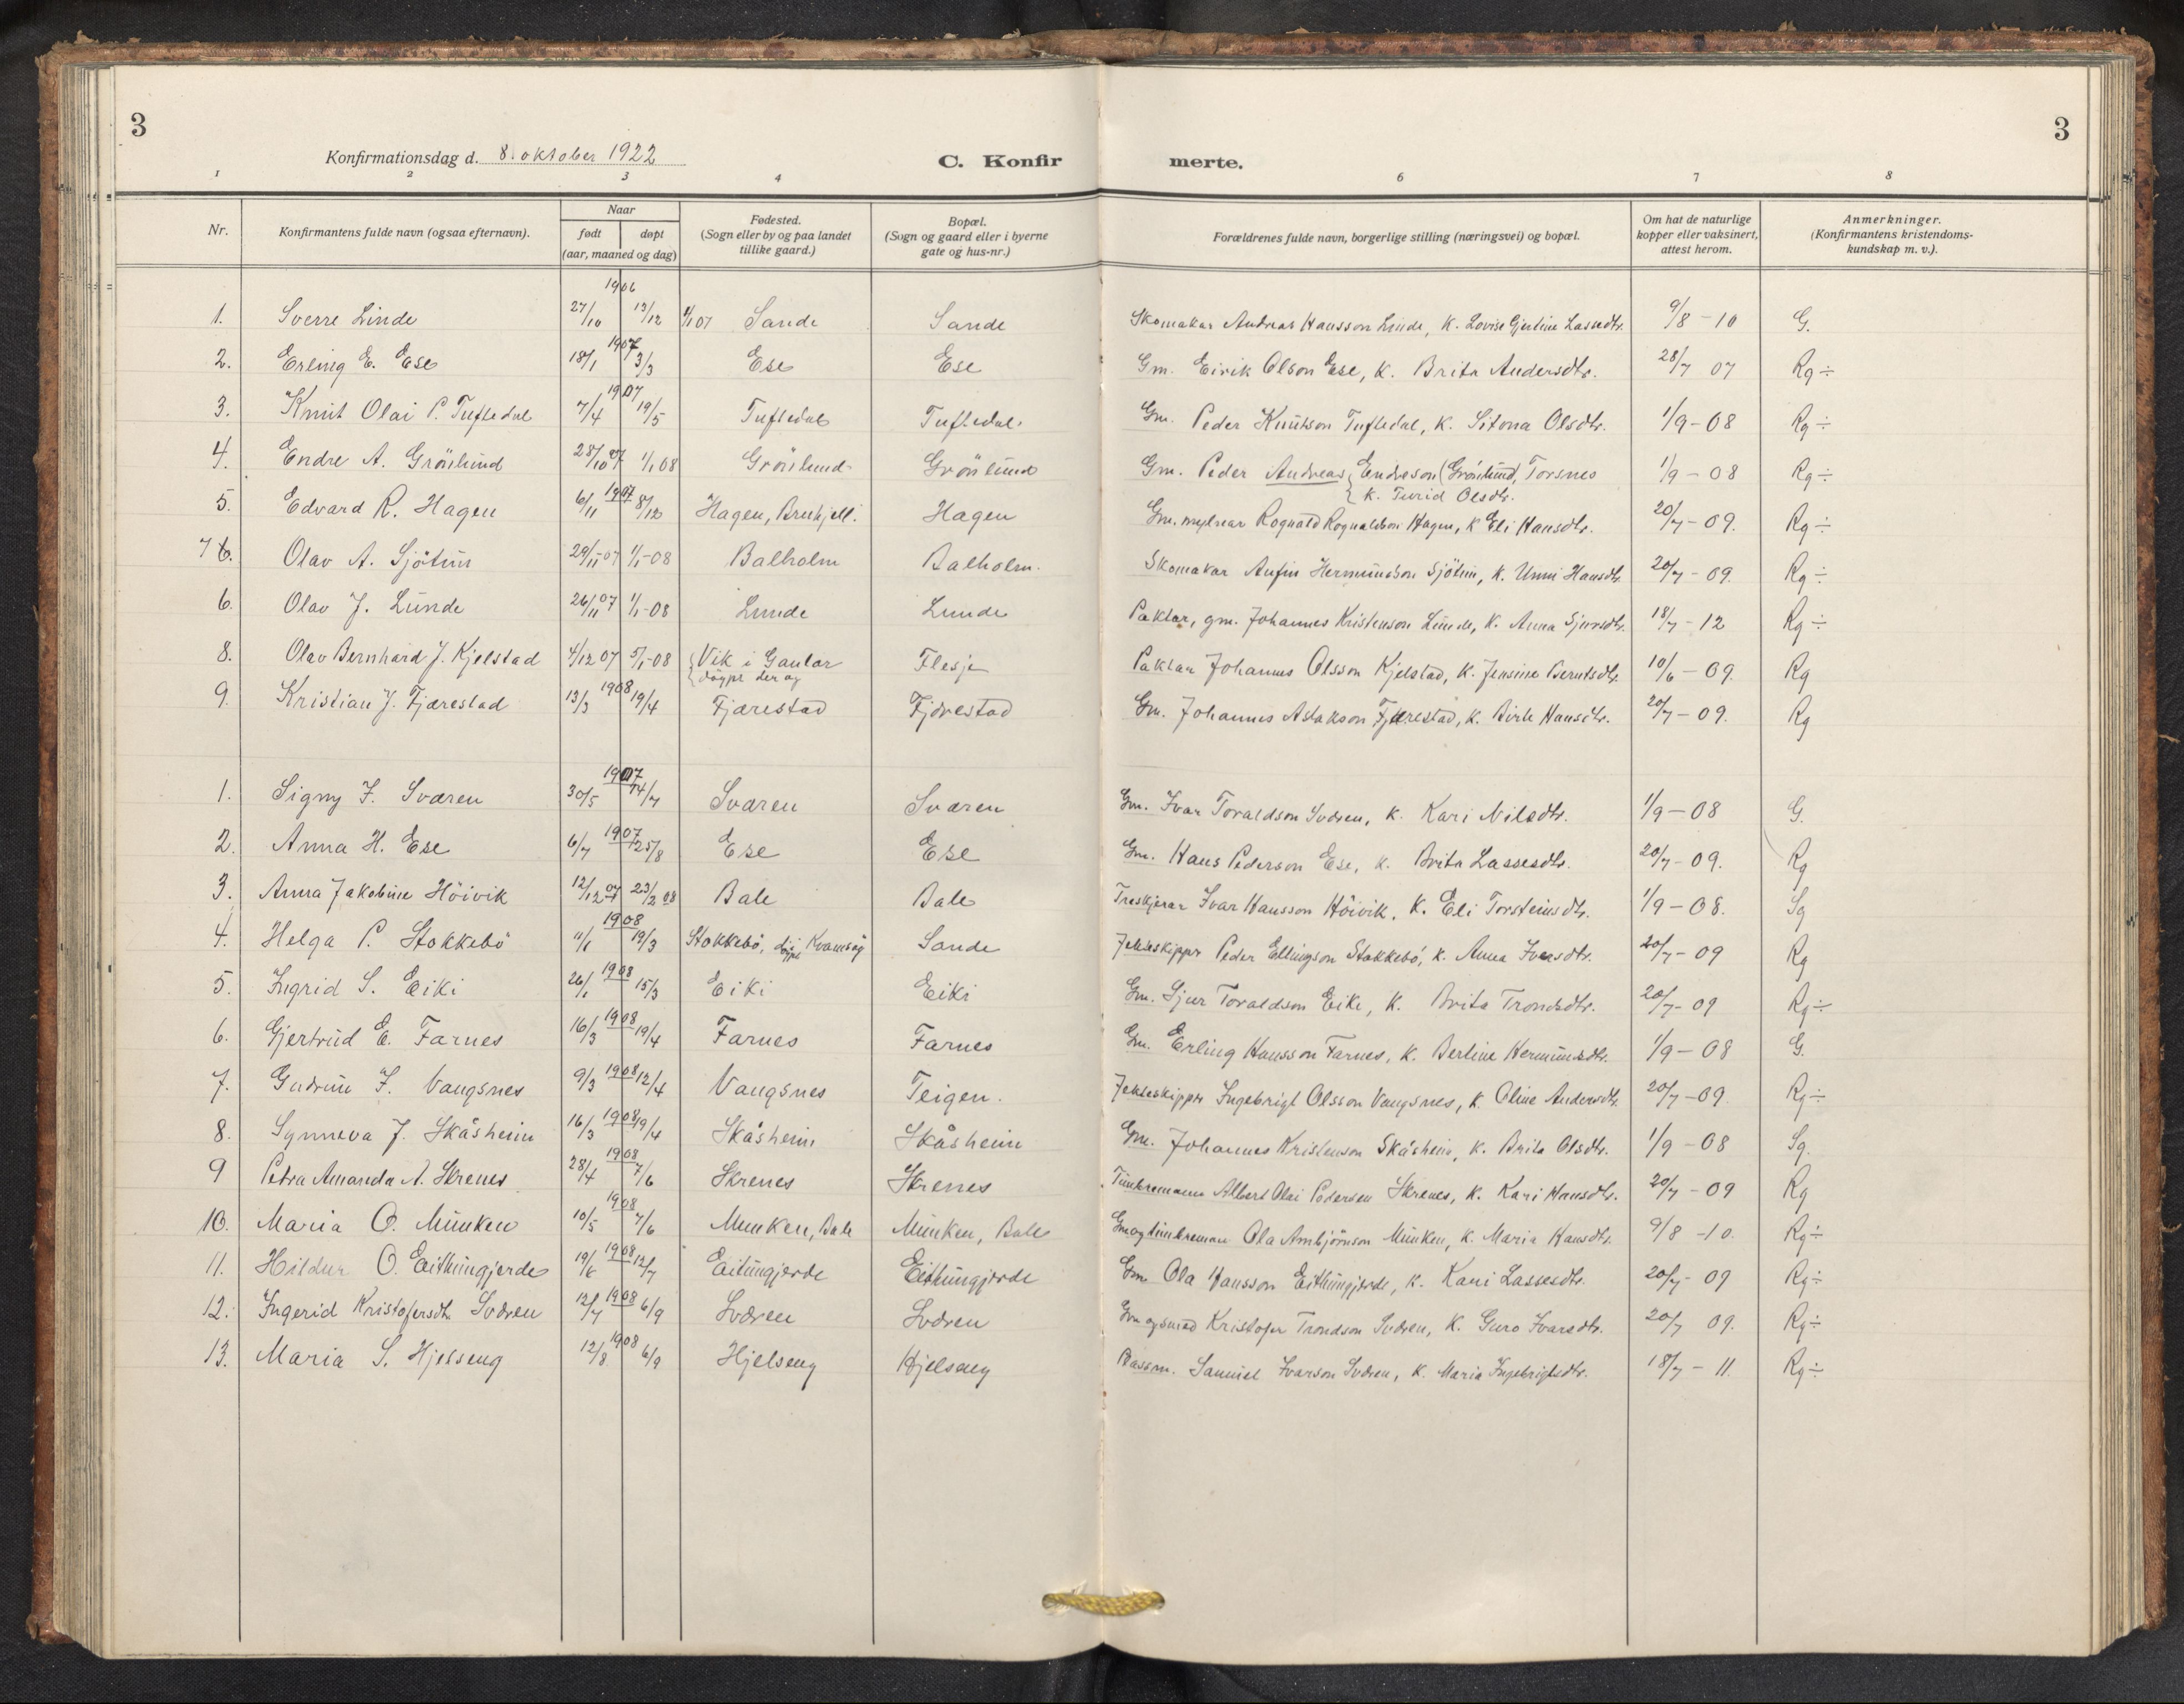 3
3
Konfirmationsdag d. 8. oktober 1922
C. Konfir merte.
1 2 3 4 6 7 8
Nr.
Konfirmantens fulde navn (ogsaa efternavn).
Naar
født døpt
(aar, maaned og dag)
Fødested.
(Sogn eller by og paa landet
tillike gaard.)
Bopæl.
(Sogn og gaard eller i byerne
gate og hus-nr.)
Forældrenes fulde navn, borgerlige stilling (næringsvei) og bopæl.
Om hat de naturlige
kopper eller vaksinert,
attest herom.
Anmerkninger.
(Konfirmantens kristendoms-
kundskap m. v.).
1906
1. Sverre Linde 27/10 13/12 07 Sande Sande Skomakar Andreas Hansson Linde, k. Lovise Gjertine Lassedtr. 9/8-10 G.
1907
2. Erling E. Ese 18/1 3/3 Ese Ese Gm. Eirik Olson Ese, k. Brita Andersdtr. 28/7 07 Rg ÷
1907
3. Knut Olai P. Tuftedal 7/4 19/5 Tuftedal Tuftedal Gm. Peder Knutson Tuftedal, k. Sitona Olsdtr. 1/9-08 Rg ÷
4. Endre A. Grönlund 28/10 07 1/1 08 Grönlund Grönlund Gm. Peder Andreas Endreson (Grönlund) Torsnes 1/9-08 Rg ÷
k. Turid Olsdtr.
1907
5. Edvard R. Hagen 6/11 8/12 Hagen, Hagen Gm. mylnar Rognald Rognaldson Hagen, k Eli Hansdtr. 20/7-09. Rg ÷
7 6. Olav A. Sjötun 29/11-07 1/1-08 Balholm Balholm. Skomakar Anfin Hermundson Sjötun, k. Unni Hansdtr. 20/7-09. Rg ÷
6. Olav J. Lunde 26/11 07 1/1-08 Lunde Lunde Paktar, gm. Johannes Kristenson Lunde, k. Anna Sjursdtr. 18/7-12 Rg ÷
8. Olav Bernhard J. Kjelstad 4/12 07 5/1-08 Vik i Gaular Flesje Paktar Johannes Olsson Kjelstad, k. Jensine Berntsdtr. 10/6-09. Rg
döypt der og
1908
9. Kristian J. Fjærestad 13/3 19/4 Fjærestad Fjærestad Gm. Johannes Aslakson Fjærestad, k. Birte Hansdtr. 20/7-09. Rg
1907
1. Signy I. Sværen 30/5 14/7 Sværen Sværen Gm. Ivar Toraldson Sværen, k. Kari Nilsdtr. 1/9-08 G.
1907
2. Anna H. Ese 6/7 25/8 Ese Ese Gm. Hans Pederson Ese, k. Brita Lassesdtr. 20/7-09. Rg
3. Anna Jakobine Höivik 12/12 07 23/2 08 Bale Bale Treskjerar Ivar Hansson Höivik, k. Eli Torsteinsdtr. 1/9-08. Sg
1908
4. Helga P. Stokkebö 11/1 19/3 Stokkebö, döypt Kvamsøy Sande Jekteskippr Peder Ellingson Stokkebö, k. Anna Iversdtr. 20/7-09 Rg
1908
5. Ingrid S. Eiki 26/1 15/3 Eiki Eiki Gm. Sjur Toraldson Eike, k. Brita Trondsdtr. 20/7-09 Rg ÷
1908
6. Gjertrud E. Farnes 16/3 19/4 Farnes Farnes Gm. Erling Hansson Farnes, k. Bertine Hermundsdtr. 1/9-08 G.
1908
7. Gudrun I. Vangsnes 9/3 12/4 Vangsnes Teigen. Jekteskippr Ingebrigt Olsson Vangsnes, k. Oline Andersdtr. 20/7-09. Rg ÷
1908
8. Synneva J. Skåsheim 16/3 19/4 Skåsheim Skåsheim Gm. Johannes Kristenson Skåsheim, k. Brita Olsdtr. 1/9-08 Sg.
1908
9 Petra Amanda A. Skrenes 28/4 7/6 Skrenes Skrenes Timbremann Albert Olai Pedersen Skrenes, k. Kari Hansdtr. 20/7-09 Rg
1908
10. Maria O. Munken 10/5 7/6 Munken, Bale Munken, Bale Gm og timbreman Ola Arnbjörnson Munken, k. Maria Hansdtr. 9/8-10. Rg ÷
1908
11. Hildur O. Eithungjerde 19/6 12/7 Eitungjerde Eithungjerde Gm Ola Hansson Eithungjerde, k. Kari Lassesdtr. 20/7-09 Rg ÷
1908
12. Ingerid Kristofersdtr. Sværen 12/7 6/9 Sværen Sværen Gm og smed Kristofer Trondson Sværen, k. Guro Ivarsdtr. 20/7 09. Rg ÷
1908
13. Maria S. Hjelseng 12/8 6/9 Hjelseng Hjelseng Plassm. Samuel Ivarson Sværen, k. Maria Ingebrigtsdtr. 18/7-11. Rg ÷